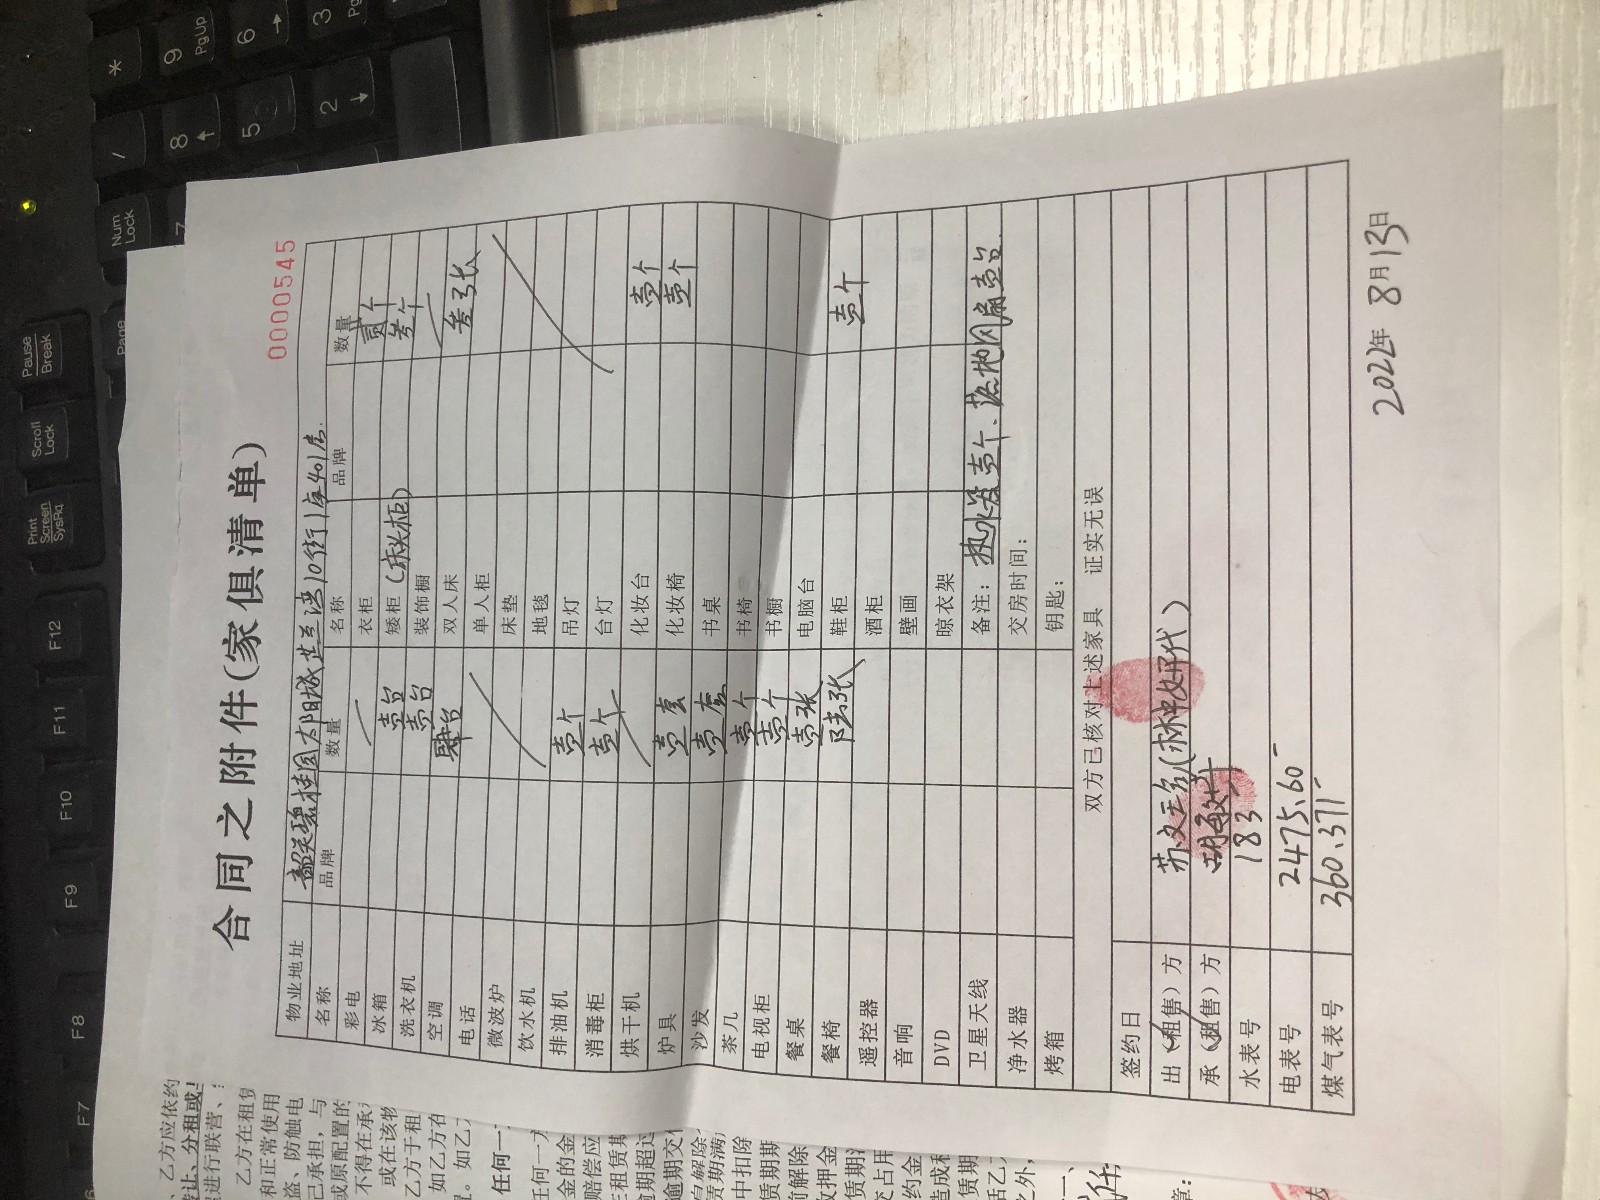 合同之附件(家俱清单)
0000545
物业地址 韶关碧桂园太阳城芷兰湾10街1座401房.
名称 品牌 数量 名称 品牌 数量
彩电 衣柜 贰个
冰箱 壹台 矮柜(床头柜) 叁个
洗衣机 壹台 装饰橱
空调 肆台 双人床 叁张
电话 单人柜
微波炉 床垫
饮水机 地毯
排油机 壹个 吊灯
消毒柜 壹个 台灯
烘干机 化妆台 壹个
炉具 壹套 化妆椅 壹个
沙发 壹套 书桌
茶几 壹个 书椅
电视柜 壹个 书橱
餐桌 壹张 电脑台
餐椅 陆张 鞋柜 壹个
遥控器 酒柜
音响 壁画
DVD 晾衣架
卫星天线 备注: 热水器壹个、落地风扇壹台.
净水器 交房时间:
烤箱 钥匙:
双方已核对上述家具 证实无误
签约日
出(租售)方
承(租售)方 胡敏
水表号 183
电表号 2475.60
煤气表号 360.371
2022年 8月13日
Print Screen SysRq
Scroll Lock
Pause Break
Num Lock
/
*
7
8
9 PgUp
5
6
2
3
F7
F8
F9
F10
F11
F12
、乙方应依约
让、分租或
进行联营、
乙方在租
和正常使用
盗、防触电
己承担,与
或原配置的
不得在承
或在该物
乙方于租
如乙方在
。如乙
任何一